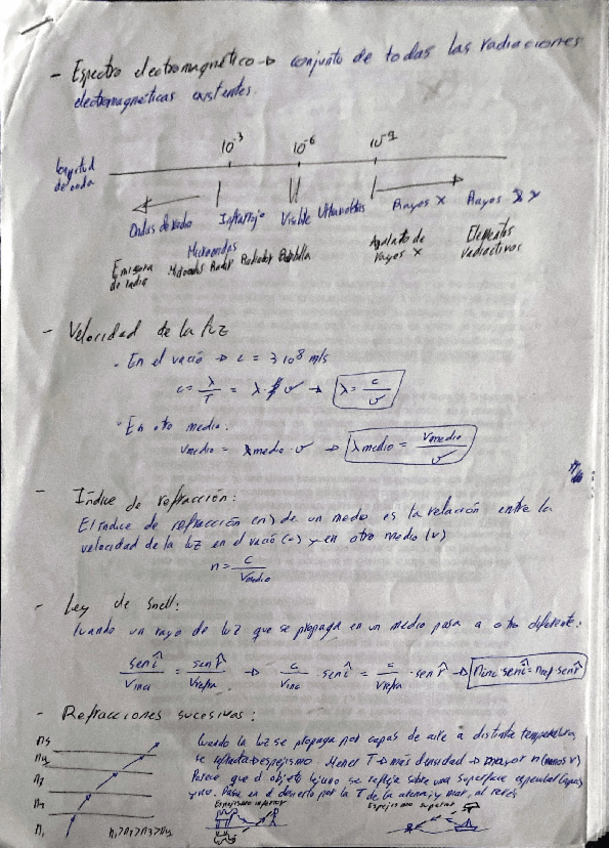 - Espectro electromagnético → conjunto de todas las radiaciones
electromagnéticas existentes.
longitud
de onda
10⁻³ 10⁻⁶ 10⁻⁹
Ondas de radio Infrarrojo Visible Ultravioleta Rayos X Rayos γ
Microondas
Emisora
de radio
Microondas Radar Radiador Bombilla
Aparato de
rayos X
Elementos
radiactivos
- Velocidad de la luz
- En el vacío → c = 3 10⁸ m/s
c = λ/T = λ · ν → λ = c/ν
- En otro medio:
Vmedio = λmedio · ν → λmedio = Vmedio/ν
- Índice de refracción:
El índice de refracción (n) de un medio es la relación entre la
velocidad de la luz en el vació (c) y en otro medio (v)
n = c/Vmedio
- Ley de Snell:
Cuando un rayo de luz que se propaga en un medio pasa a otro diferente:
sen î/Vinci = sen r̂/Vrefra → c/Vinc · sen î = c/Vrefra · sen r̂ → ninc · sen î = nref · sen r̂
- Refracciones sucesivas:
Cuando la luz se propaga por capas de aire a distinta temperatura
se → espejismo. Menor T → más densidad → mayor n (menos v)
Parece que el objeto lejano se refleja sobre una superficie especular
y no. Pasa en el desierto por la T de la arena y mar, al revés
n5
n4
n3
n2
n1
n1>n2>n3>n4
Espejismo inferior
Espejismo superior